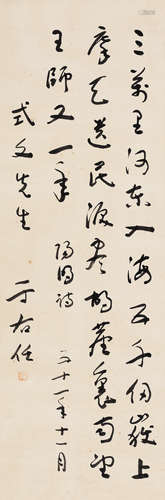 三萬里河東入海五千仞嶽上
摩天遺民淚盡胡塵裏南望
王師又一年 詩 五十一年十一月
式文先生
于右任